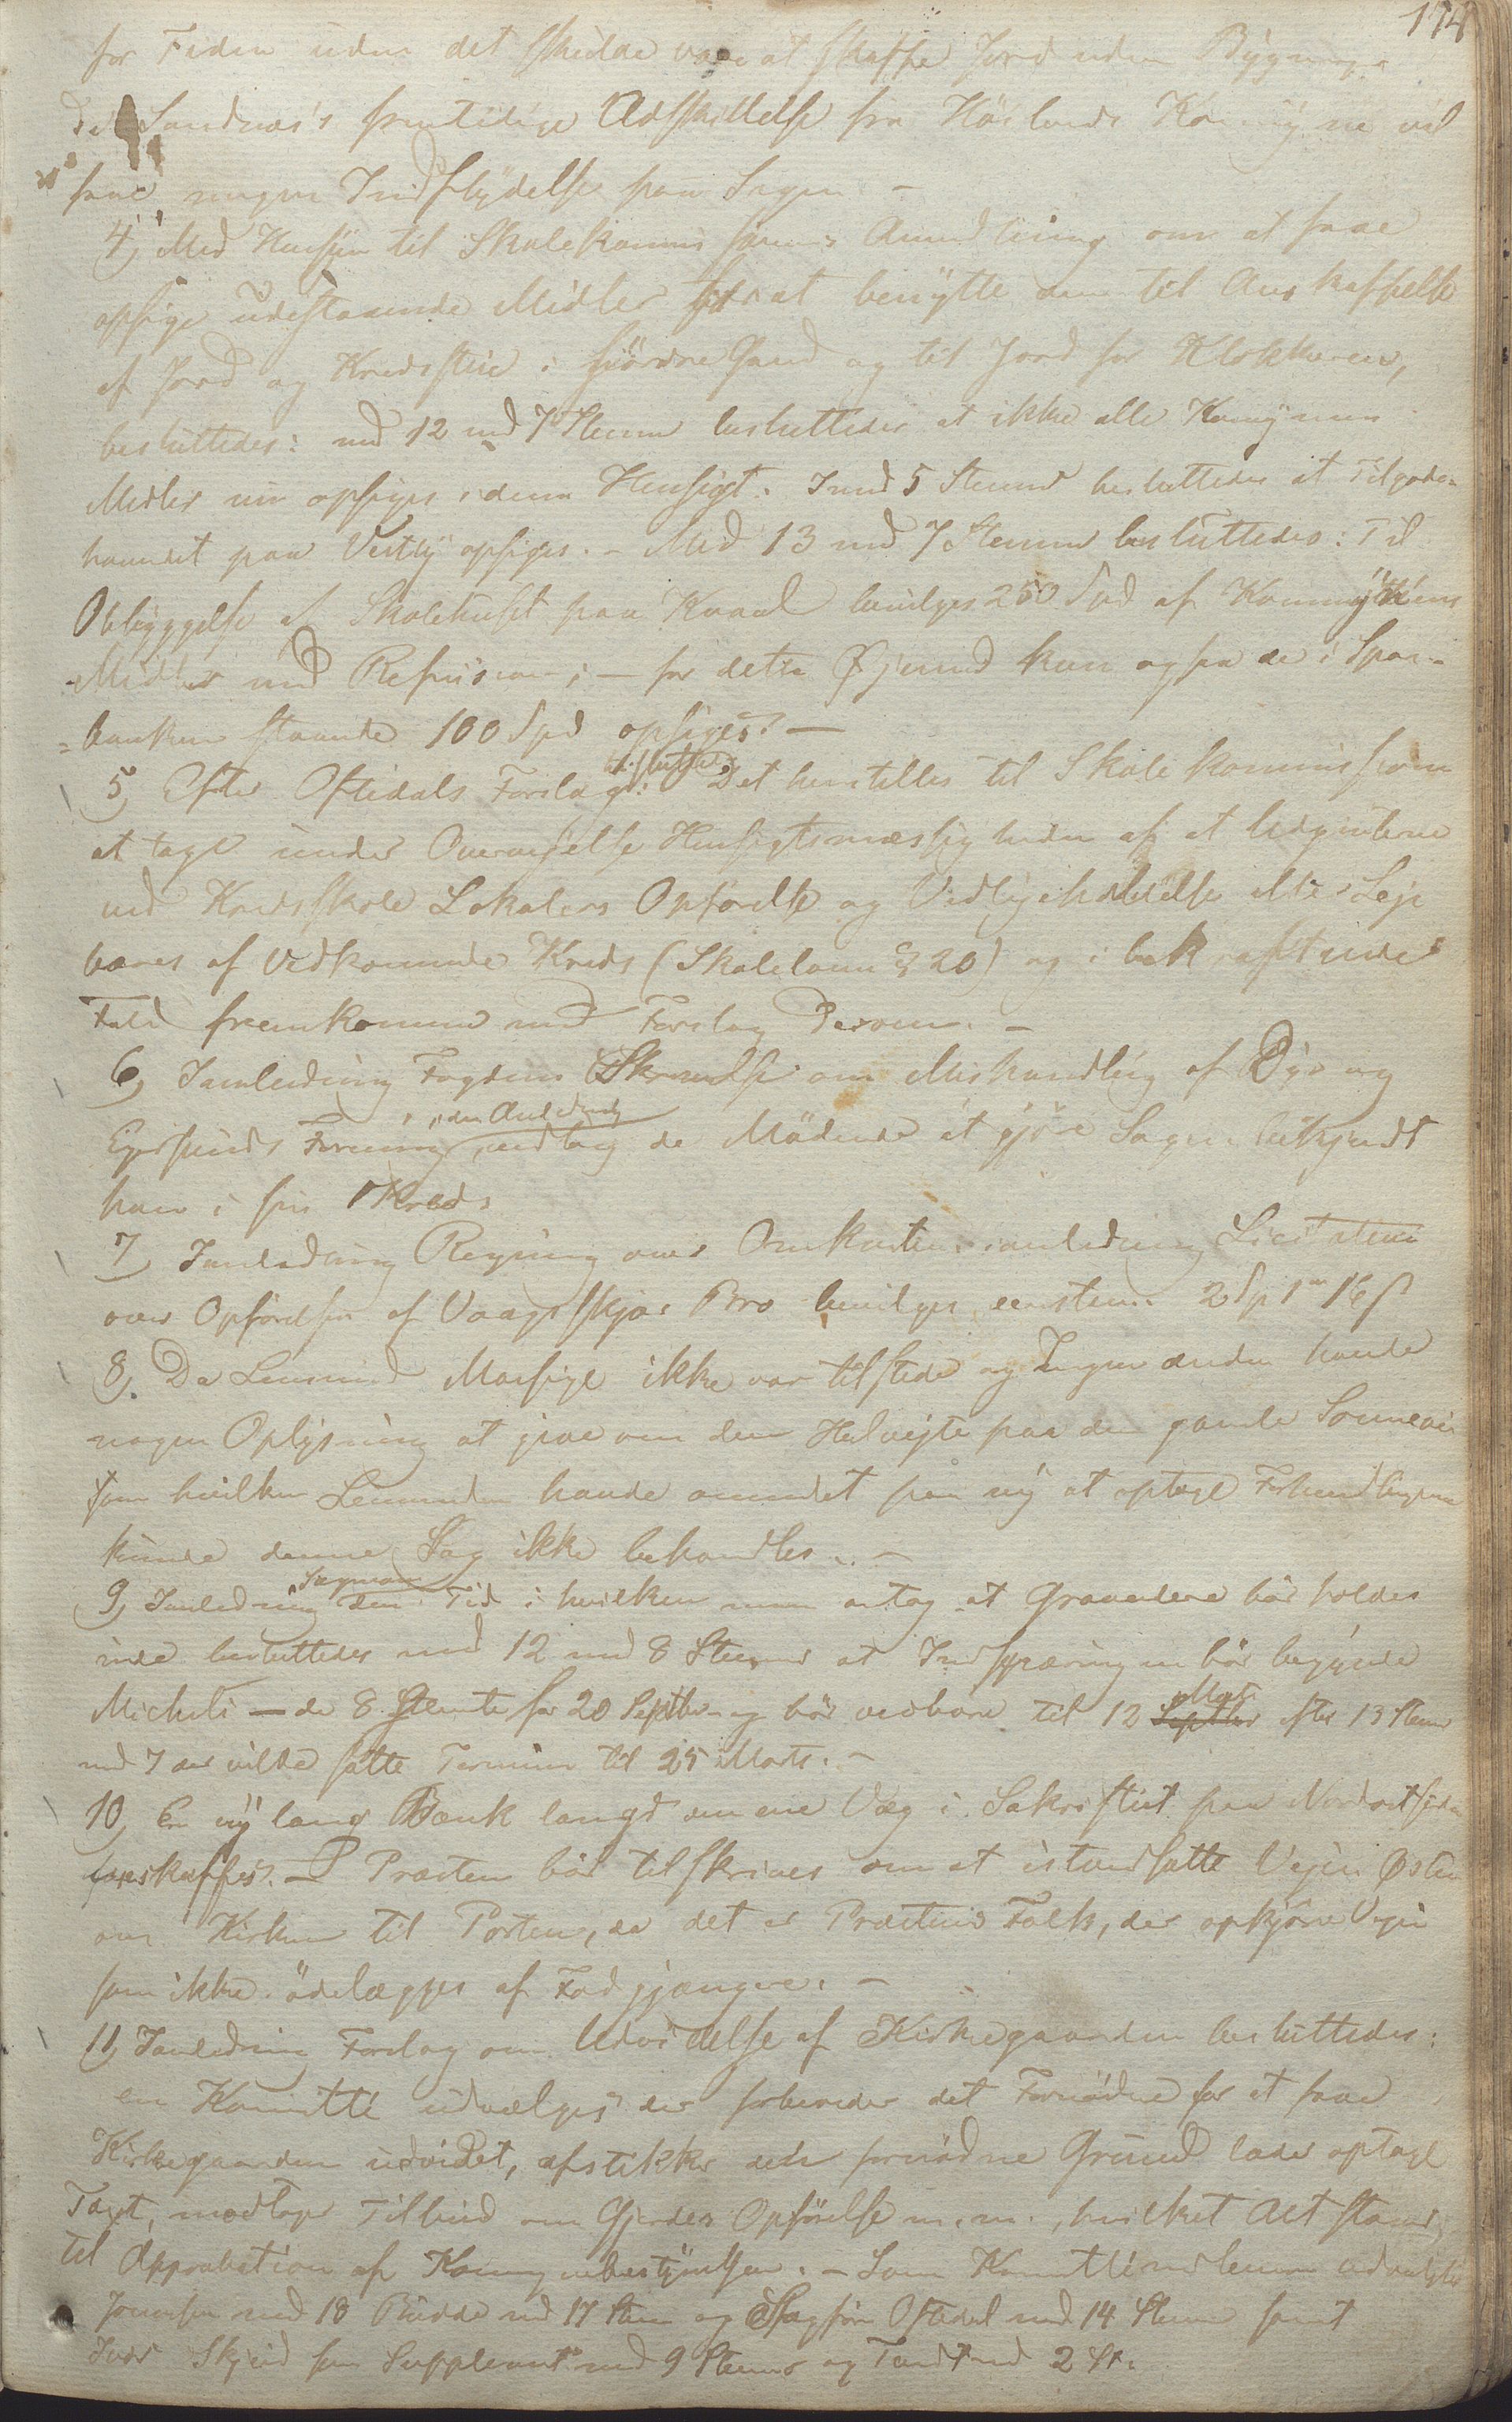 174
for Tiden uden det skulde være at skaffe Jord uden Bygninger
da Sandnæs's fremtidige Adskillelse fra Höilands Kommyne vil
faae megen Indflydelse paa Sagen —
4, Med Hensyn til Skolekommissionens Anmodning om at faae
opsige udestaaende Midler for at benytte dem til Anskaffelse
af Jord og Kredsstue i Gand og til Jord for Klokkeren,
besluttedes: med 12 mod 7 Stemmer besluttedes at ikke alle Kommynens
Midler nu opsiges i denne Hensigt. Imod 5 Stemmer besluttedes at Tilgode-
havendet paa Vestly opsiges. - Med 13 mod 7 Stemmer besluttedes: Til
Obbyggelse af Skolehuset paa Kvaal bevilges 250 Spd af Kommynens
Midler med Refusion; — for dette Øjemed kan ogsaa de i Spare-
=banken staaende 100 Spd opsiges. —
5, Efter Oftedals Forslag besluttedes: Det henstilles til Skolekommissionen
at tage under Overvejelse Hensigtsmæssigheden af at Udgifterne
ved Kredsskole Lokalers Opförelse og Vedligeholdelse eller Leje
bæres af Vedkommende Kreds (Skoleloven § 20) og i bekræftende
Fald fremkomme med Forslag derom. —
6, Ianledning Fogdens Skrivelse om Mishandling af Dyr og
Egersunds Forening i den Anledning vedtog de Mödende at gjöre Sagen bekjendt
hver i sin Kreds
7, Ianledning Regning over Omkostn. ianledning Licitation
over Opförelsen af Vaagsskjær Bro bevilges eenstem. 2 Sp 1 m 16 s
8, Da Lensmand Massige ikke var tilstede og Ingen anden havde
nogen Oplysning at give om den Halvejte paa den gamle
om hvilken Lensmanden havde anmodet paa ny at optage Forhandlingerne
kunde denne Sag ikke behandles. —
9, Ianledning Sagen om den Tid i hvilken man antog at Gravulene bör holdes
inde besluttedes med 12 mod 8 Stemmer at Indspærringen bör begynde
Micheli — de 8 stemte for 20 Septbr - og bör vedvare til 12 Septbr Marts efter 13 Stemmer
mod 7 der vilde sætte Terminen til 25 Marts. —
10, En ny lang Bænk langs omme Væg i Sakristiet paa Nordostsiden
anskaffes. — Præsten bör tilskrives om at istandsætte Vejen Østen
om Kirken til Porten, da det er Præstens Folk, der opkjöre Vejen
som ikke ödelægges af Fodgjængere. —
11, Ianledning Forslag om Udvidelse af Kirkegaarden besluttedes:
en Komitté udvælges der forbereder det Fornödne for at faae
Kirkegaarden udvidet, afstikker den fornödne Grund lader optage
Taxt, modtage Tilbud om Gjerdes Opförelse m.m., hvilket Alt staaer
til Approbation af Kommynebestyrelsen. - Som Komittémedlemmer udvalgtes
Jonassen med 18 Budde med 17 Stem og Sagförer Oftedal med 14 Stemmer samt
Iver Skjeid som Suppleant med 9 Stemmer og Tandt med 2 St.